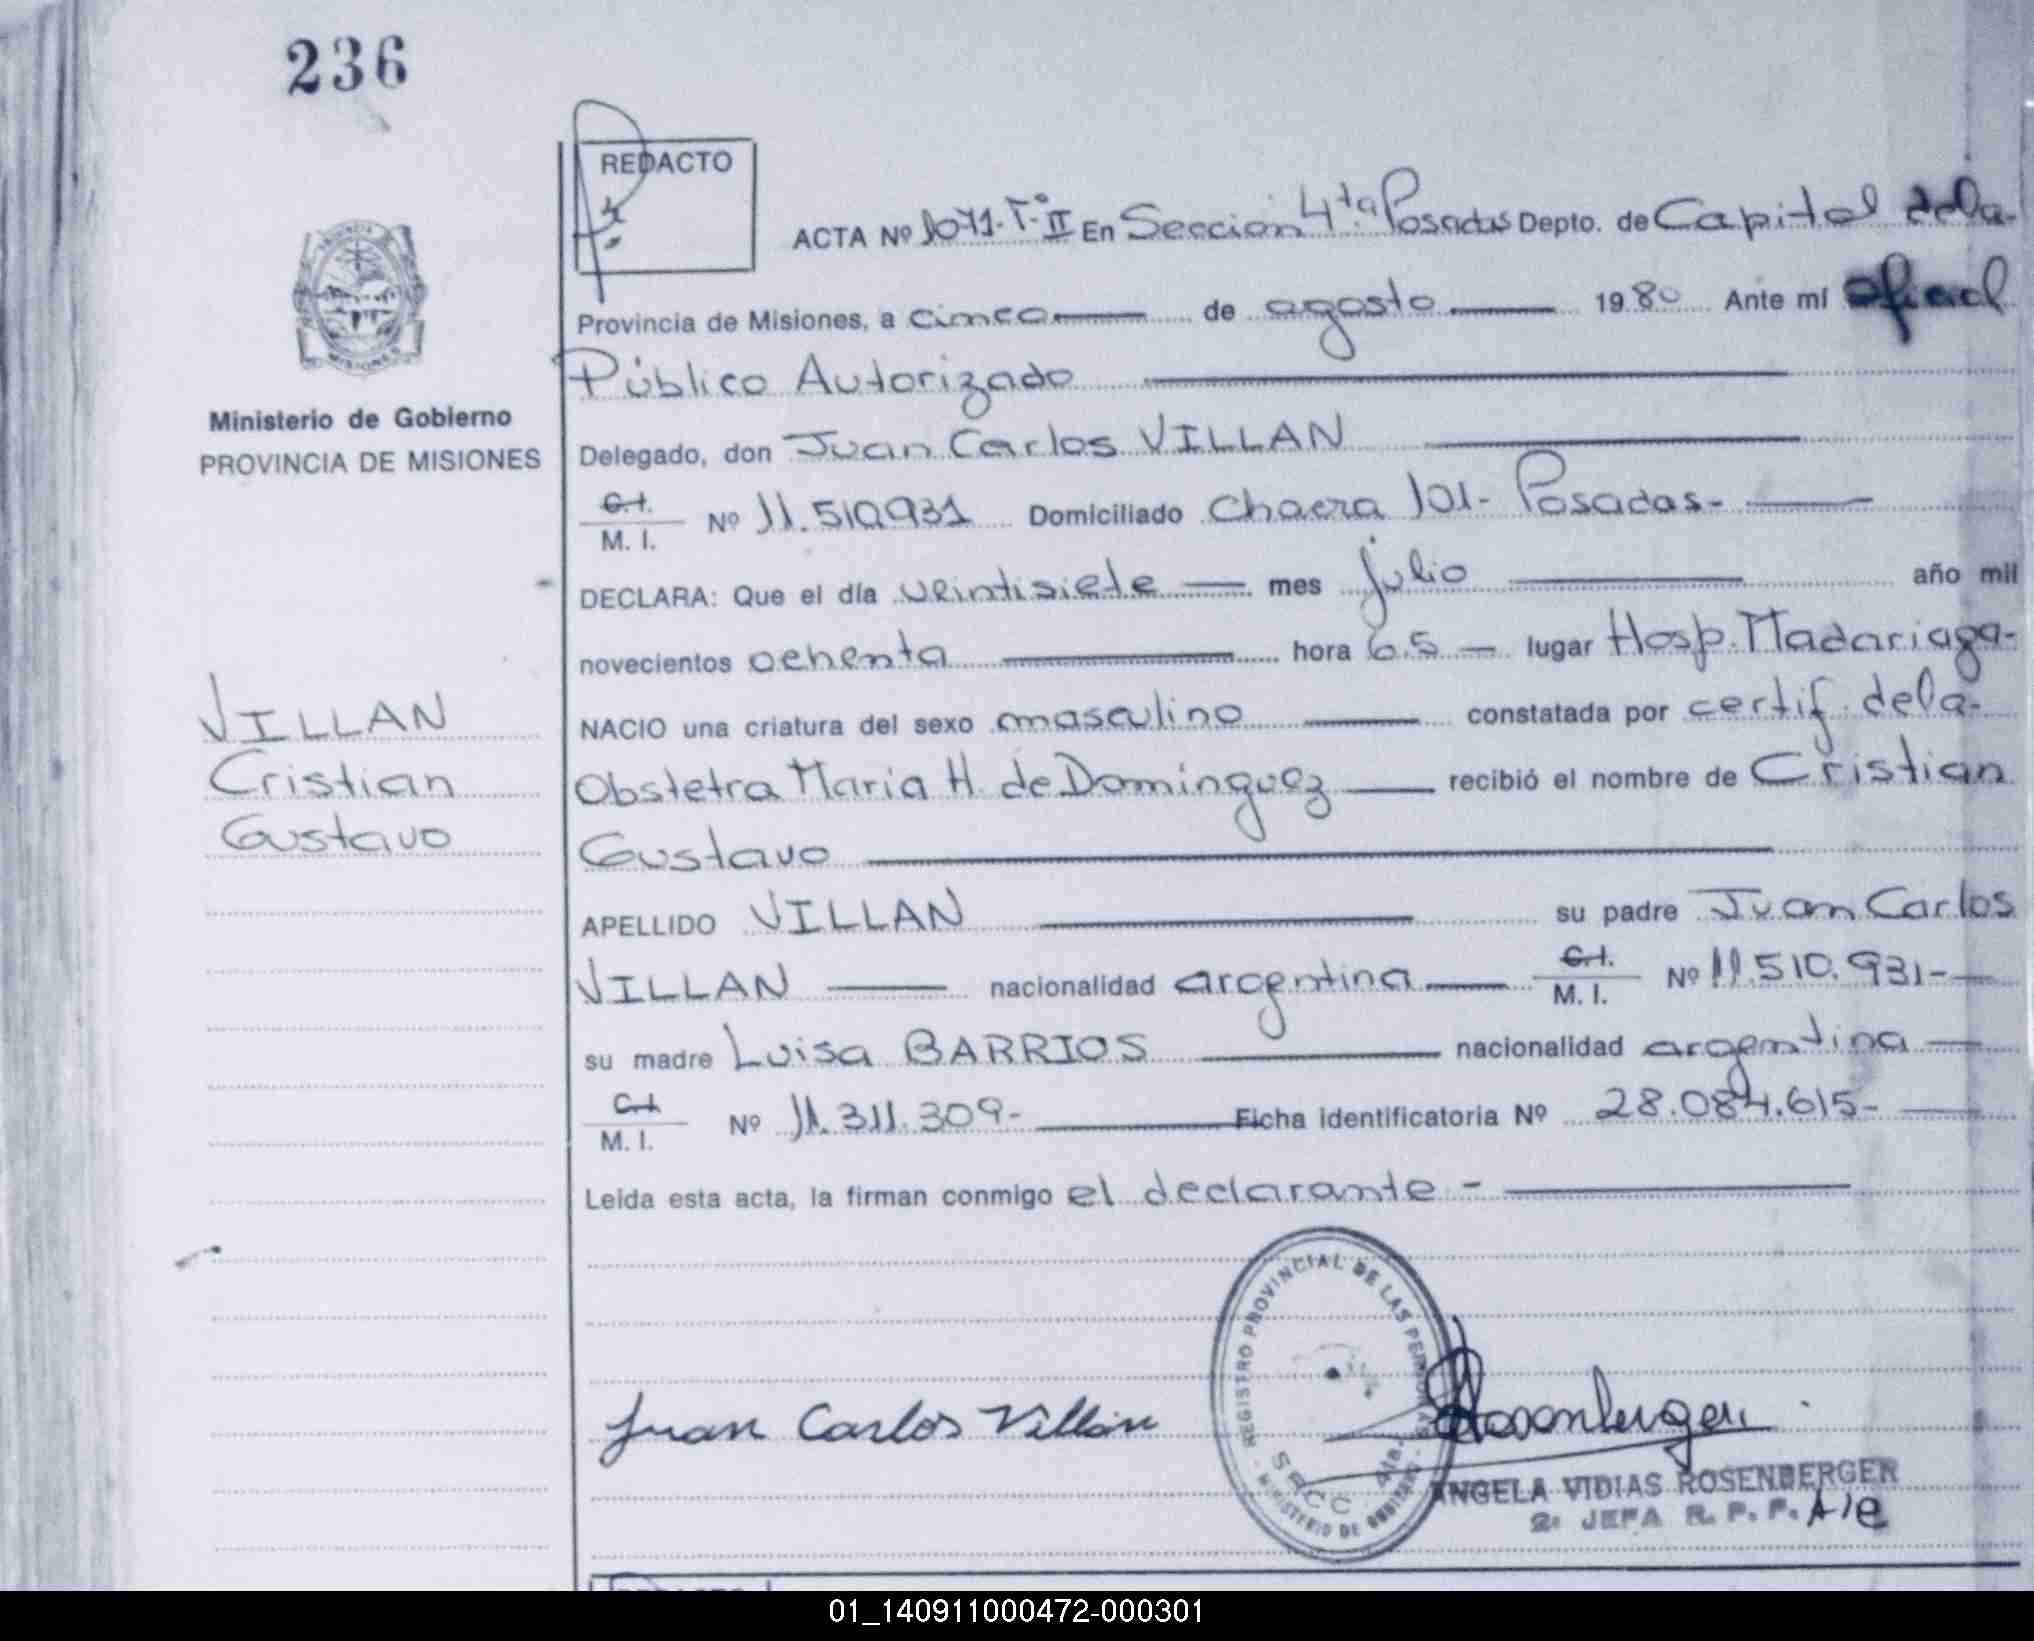 236
REDACTO
ACTA Nº 1071-Tº II En Sección 4ta Posadas Depto. de Capital dela-
Provincia de Misiones, a cinco de agosto 1980 Ante mí Oficial
Público Autorizado
Ministerio de Gobierno
PROVINCIA DE MISIONES
Delegado, don Juan Carlos VILLAN
C.I.
M. I. Nº 11.510.931 Domiciliado Chacra 101- Posadas-
DECLARA: Que el día veintisiete mes julio año mil
novecientos ochenta hora 6.5 lugar Hosp. Madariaga-
VILLAN
Cristian
Gustavo
NACIO una criatura del sexo masculino constatada por certif. dela-
Obstetra Maria H. de Dominguez recibió el nombre de Cristian
Gustavo
APELLIDO VILLAN su padre Juan Carlos
VILLAN nacionalidad argentina C.I. M. I. Nº 11.510.931-
su madre Luisa BARRIOS nacionalidad argentina
C.I.
M. I. Nº 11.311.309- Ficha identificatoria Nº 28.084.615-
Leída esta acta, la firman conmigo el declarante -
REGISTRO PROVINCIAL DE LAS PERSONAS
SECC. 4ta.
MINISTERIO DE GOBIERNO
Juan Carlos Villán
Rosenberger
ANGELA VIDIAS ROSENBERGER
2ª JEFA R. P. P. A/c
01_140911000472-000301